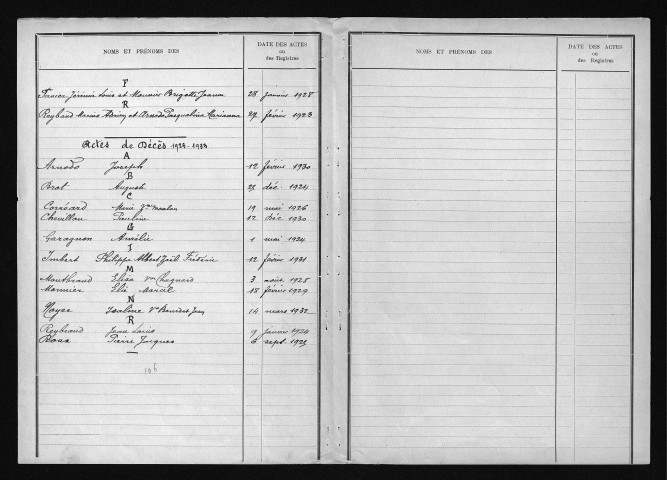 NOMS ET PRÉNOMS DES
DATE DES ACTES
ou
des Registres
F
Favier Jérémie Louis et Meunier Brigitte Jeanne 28 janvier 1928
R
Reybaud Marius Adrien et Arnodo Pasqualine Marianne 27 février 1923
Actes de Décès 1923-1932
A
Arnodo Joseph 12 février 1930
B
Brot Auguste 23 déc. 1924
C
Marie Vve 19 mai 1926
Chevillon Pauline 12 Déc 1930
G
Garagnon Amélie 1 mai 1924
I
Imbert Philippe Albert Joël Frédéric 12 février 1931
M
Montbrand Elisa Vve 3 août 1928
Monnier Elie Marcel 18 février 1929
N
Noyer Isaline Vve Jean 14 mars 1932
R
Reybaud Jean Louis 9 janvier 1924
Roux Pierre Jacques 6 sept. 1923
NOMS ET PRÉNOMS DES
DATE DES ACTES
ou
des Registres